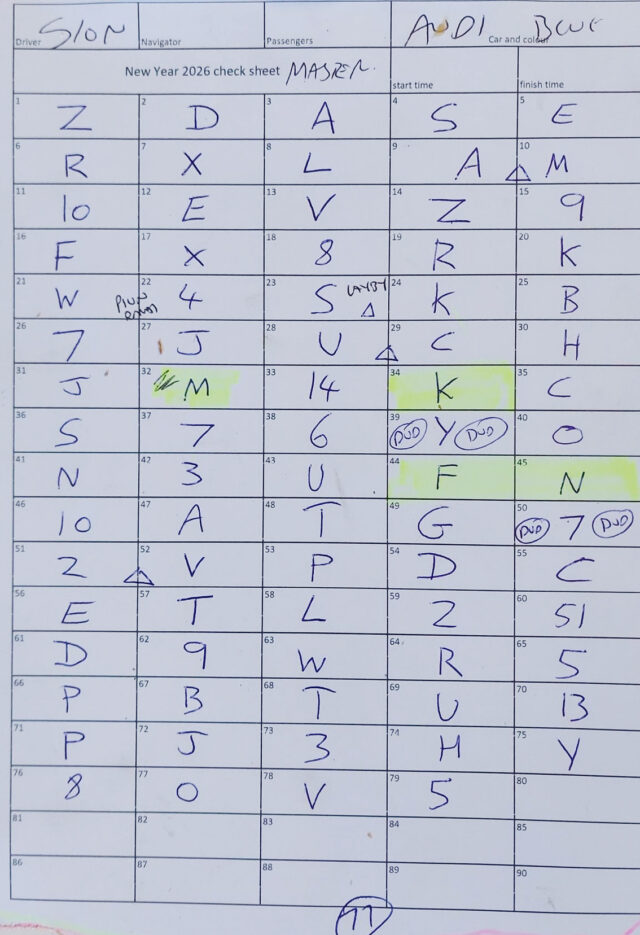 Driver SION Navigator Passengers AUDI BLUE Car and colour
New Year 2026 check sheet MASTER. start time finish time
1 Z 2 D 3 A 4 S 5 E
6 R 7 X 8 L 9 A 10 M
11 10 12 E 13 V 14 Z 15 9
16 F 17 X 18 8 19 R 20 K
21 W 22 4 23 S LAYBY 24 K 25 B
26 7 27 J 28 U 29 C 30 H
31 J 32 M 33 14 34 K 35 C
36 S 37 7 38 6 39 DUD Y DUD 40 O
41 N 42 3 43 U 44 F 45 N
46 10 47 A 48 T 49 G 50 DUD 7 DUD
51 2 52 V 53 P 54 D 55 C
56 E 57 T 58 L 59 2 60 51
61 D 62 9 63 W 64 R 65 5
66 P 67 B 68 T 69 U 70 13
71 P 72 J 73 3 74 H 75 Y
76 8 77 O 78 V 79 5 80
81 82 83 84 85
86 87 88 89 90
77